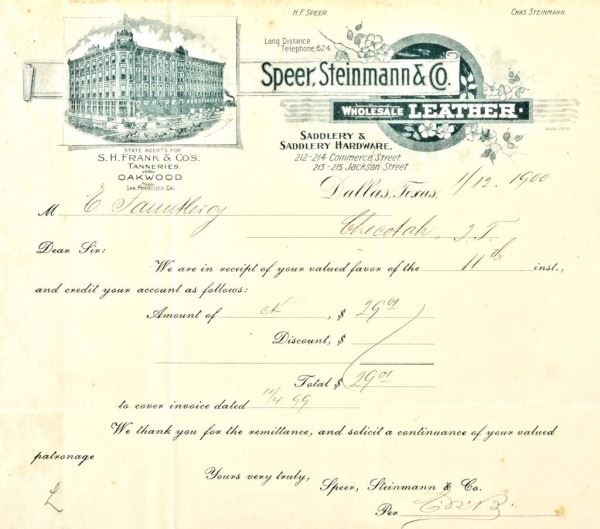 H.F. SPEER. CHAS. STEINMANN.
Long Distance
Telephone 624
Speer, Steinmann & Co.
WHOLESALE LEATHER.
SADDLERY &
SADDLERY HARDWARE,
212-214 Commerce Street.
213-215 Jackson Street.
STATE AGENTS FOR
S.H. FRANK & CO'S.
TANNERIES.
OAKWOOD
SAN FRANCISCO, CAL.
Dallas, Texas, 1/12 1900
M E Fauntleroy
Checotah, I.T.
Dear Sir:
We are in receipt of your valued favor of the 11th inst.,
and credit your account as follows:
Amount of ck , $ 29 01
Discount, $
Total $ 29 01
to cover invoice dated 11/4 99
We thank you for the remittance, and solicit a continuance of your valued
patronage
Yours very truly,
Speer, Steinmann & Co.
Per